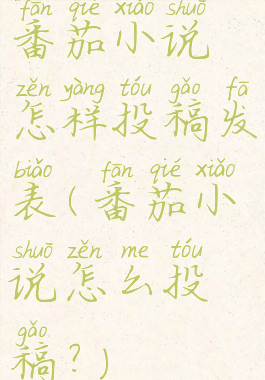 fān qié xiǎo shuō
番茄小说
zěn yàng tóu gǎo fā
怎样投稿发
biǎo ( fān qié xiǎo
表(番茄小
shuō zěn me tóu
说怎么投
gǎo
稿?)